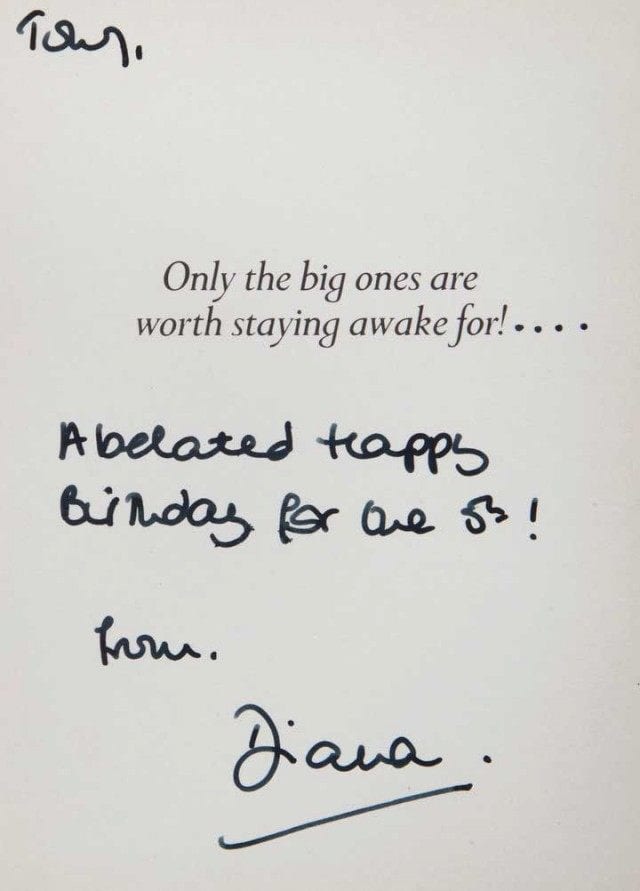 Tony,
Only the big ones are
worth staying awake for!....
A belated Happy
Birthday for the 5th!
from.
Diana.